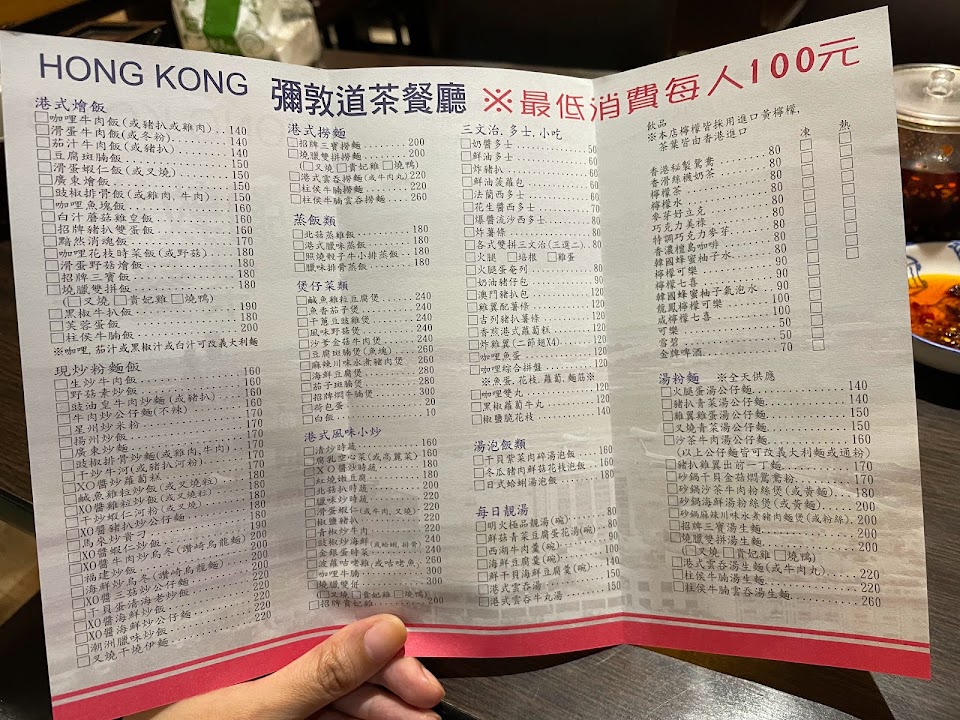 HONG KONG 彌敦道茶餐廳 ※最低消費每人100元
港式燴飯
咖哩牛肉飯(或豬扒或雞肉)..140
滑蛋牛肉飯(或冬粉)........140
茄汁牛肉飯(或豬扒)........140
豆腐斑腩飯................150
滑蛋蝦仁飯(或叉燒)........150
廣東燴飯..................150
豉椒排骨飯(或雞肉,牛肉)...150
咖哩魚塊飯................160
白汁蘑菇雞皇飯............160
招牌豬扒雙蛋飯............160
黯然消魂飯................170
咖哩花枝時菜飯(或野菇)....180
滑蛋野菇燴飯..............180
招牌三寶飯................180
燒臘雙拼飯................180
(叉燒 貴妃雞 燒鴨)
黑椒牛扒飯................190
芙蓉蛋飯..................180
柱侯牛腩飯................200
※咖哩,茄汁或黑椒汁或白汁可改義大利麵
現炒粉麵飯
生炒牛肉飯................160
野菇素炒飯................160
豉油皇牛肉炒麵(或豬扒)....160
牛肉炒公仔麵(不辣)
星州炒米粉
揚州炒飯
廣東炒麵
豉椒排骨炒麵(或雞肉,牛肉)
干炒牛河(或豬扒河粉)
XO醬炒蘿蔔糕
鹹魚雞粒炒飯(或叉燒粒)
XO醬雞粒炒飯(或叉燒粒)
干炒蝦仁河粉(或叉燒)
XO醬豬扒炒公仔麵
馬來炒貴刁
XO醬蝦仁炒飯
XO醬牛肉炒烏冬(讚岐烏龍麵)
福建炒飯
海鮮炒烏冬(讚岐烏龍麵)
XO醬三菇炒公仔麵
干貝蛋清海老炒飯
XO醬海鮮炒飯
XO醬海鮮炒公仔麵
潮洲臘味炒飯..............220
叉燒干燒伊麵..............220
港式撈麵
招牌三寶撈麵..............200
燒臘雙拼撈麵..............200
(叉燒 貴妃雞 燒鴨)
港式雲吞撈麵(或牛肉丸)....220
柱侯牛腩雲吞撈麵..........260
蒸飯類
北菇蒸雞飯................180
港式臘味蒸飯..............180
照燒骰子牛小排蒸飯........180
臘味排骨蒸飯..............180
煲仔菜類
鹹魚雞粒豆腐煲............240
魚香茄子煲................240
干蔥豆豉雞煲..............240
風味野菇煲................240
沙爹金菇牛肉煲............240
豆腐斑腩煲(魚塊)..........260
麻辣川味水煮豬肉煲........260
海鮮豆腐煲................260
茄子斑腩煲................280
招牌燜牛腩煲..............300
荷包蛋....................20
白飯......................10
港式風味小炒
清炒時蔬..................160
腐乳空心菜(或高麗菜)......160
XO醬炒時蔬................180
紅燒嫩豆腐................200
北菇扒時蔬................200
臘味炒時蔬................220
滑蛋蝦仁(或牛肉,叉燒).....220
椒鹽豬扒..................220
青椒炒牛肉................220
豉椒炒海鮮(或蛤蜊,排骨)
金銀蛋時菜
波蘿咕咾雞(或咕咾魚)
咖哩牛腩..................300
燒臘雙併..................300
(叉燒 貴妃雞 燒鴨)
招牌貴妃雞................200
三文治,多士,小吃
奶醬多士..................50
鮮油多士..................60
炸豬扒....................60
鮮油菠蘿包................60
法蘭西多士................60
花生醬西多士..............70
爆醬流沙西多士............80
炸薯條....................80
各式雙拼三文治(三選二)....80
火腿 培根 雞蛋
火腿蛋奄列................80
奶油豬仔包................90
澳門豬扒包................120
雞翼配薯條................120
吉列豬扒薯條..............120
香煎港式蘿蔔糕............120
炸雞翼(二節翅X4)..........120
咖哩魚蛋..................120
咖哩綜合拼盤..............120
※魚蛋,花枝,蘿蔔,麵筋※
咖哩雙丸..................120
黑椒蘿蔔牛丸..............120
椒鹽脆花枝................140
湯泡飯類
干貝紫菜肉碎湯泡飯........160
冬瓜豬肉鮮菇花枝泡飯......160
日式蛤蜊湯泡飯............180
每日靚湯
明火極品靚湯(碗)..........80
鮮菇青菜豆腐蛋花湯(碗)....80
西湖牛肉羹(碗)............90
海鮮豆腐羹(碗)............100
鮮干貝海鮮豆腐羹(碗)......140
港式雲吞湯................150
港式雲吞牛丸湯............150
飲品
※本店檸檬皆採用進口黃檸檬,
茶葉皆由香港進口
凍 熱
香港秘製鴛鴦..............80
香滑絲襪奶茶..............80
檸檬茶....................80
檸檬水
麥芽好立克
巧克力美祿
特調巧克力麥芽
香濃檀島咖啡
韓國蜂蜜柚子水
檸檬可樂
檸檬七喜
韓國蜂蜜柚子氣泡水
龍鳳檸檬可樂..............100
咸檸檬七喜................100
可樂......................50
雪碧......................50
金牌啤酒..................70
湯粉麵 ※全天供應
火腿蛋湯公仔麵............140
豬扒青菜湯公仔麵..........140
雞翼雞蛋湯公仔麵..........150
叉燒青菜湯公仔麵..........150
沙茶牛肉湯公仔麵..........160
(以上公仔麵皆可改義大利麵或通粉)
豬扒雞翼出前一丁麵........170
砂鍋干貝金菇燜鴛鴦粉......170
砂鍋沙茶牛肉粉絲煲(或黃麵)..180
砂鍋海鮮湯粉絲煲(或黃麵)..200
砂鍋麻辣川味水煮豬肉麵煲(或粉絲).200
招牌三寶湯生麵............200
燒臘雙拼湯生麵............200
(叉燒 貴妃雞 燒鴨)
港式雲吞湯生麵(或牛肉丸)..220
柱侯牛腩湯生麵............220
柱侯牛腩雲吞湯生麵........260